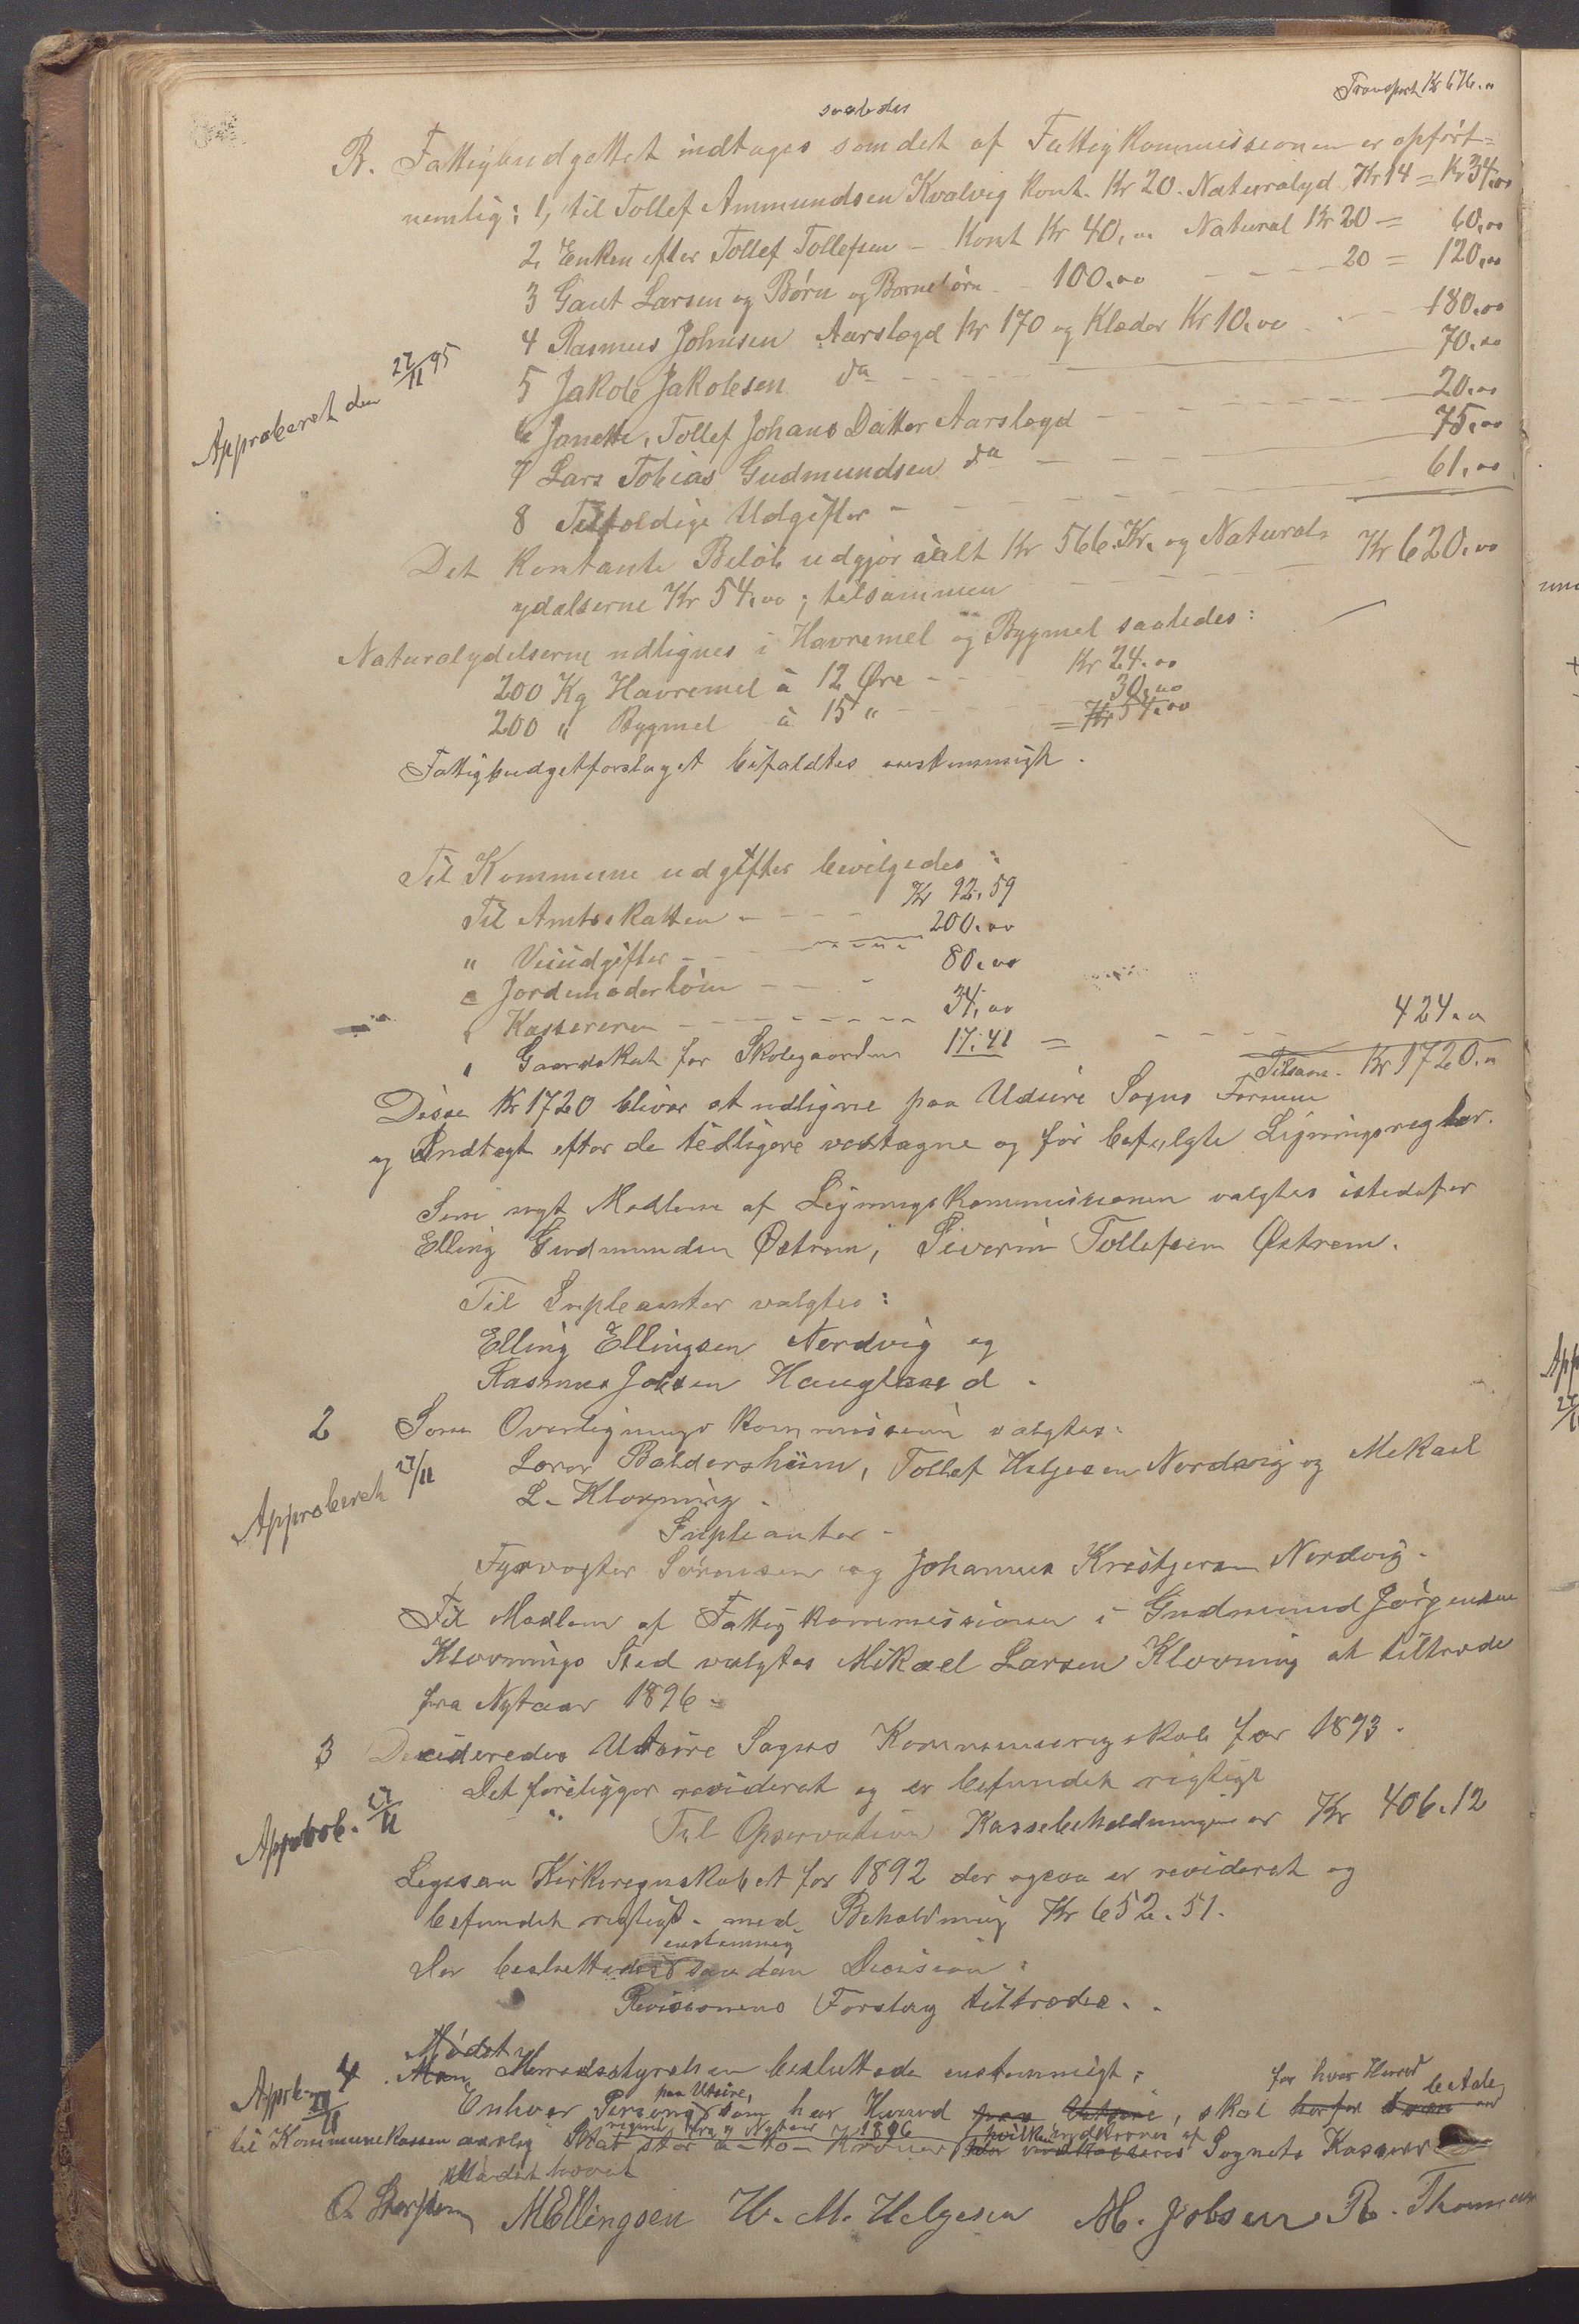 Transport Kr 676.00
saaledes
B. Fattigbudgettet indtages som det af Fattigkommissionen er opført=
nemlig: 1, til Tollef Ammundsen Kvalvig Kont. Kr 20. Naturalyd Kr 14 = Kr 34,00
2, Enken efter Tollef Tollefsen - Kont Kr 40,00 Natural Kr 20 = 60,00
3 Gaut Larsen og Børn og Børnebørn - 100.00 - - - 20 = 120,00
4 Rasmus Johnsen Aarslægd Kr 170 og Klæder Kr 10.00 - - - 180.00
Approberet den 27/11 95
5 Jakob Jakobsen do - - - 70.00
6 Janette, Tollef Johans Datter Aarslægd - - - 20.00
7 Lars Tobias Gudmundsen do - - - 75,00
8 Tilfældige Udgifter - - - 61,00
Det Kontante Beløb udgjør ialt Kr 566. Kr. og Natural-
ydelserne Kr 54,00; tilsammen - - - Kr 620.00
Naturalydelserne udlignes i Havremel og Bygmel saaledes:
200 Kg Havremel à 12 Øre - - Kr 24.00
200 " Bygmel à 15 " - - 30,00
= Kr 54,00
Fattigbudgetforslaget bifaldtes enstemmigt.
Til Kommune udgifter bevilgedes:
Til Amtsskatten - - - - Kr 92,59
" Veiudgifter - - - 200.00
" Jordemoderløn - - - 80,00
" Kassereren - - - - 34,00
" Gaardskat for Skolegaarden 17.41 = - - - 424.00
Tilsam. Kr 1720.00
Disse Kr 1720 bliver at udligne paa Udsire Sogns Formue
og Indtægt efter de tidligere vedtagne og før befulgte Ligningsregler.
Som nyt Medlem af Ligningskommissionen valgtes istedefor
Elling Gudmundsen Østrem, Siverin Tollefsen Østrem.
Til Supleanter valgtes:
Elling Ellingsen Nordvig og
Rasmus Jobsen Haugland.
2 Som Overligningskommission valgtes.
Approberet 27/11
Lærer Baldersheim, Tollef Helgesen Nordvig og Mikael
L. Klovning.
Supleanter -
Fyrvogter Sørensen og Johannes Kristjersen Nordvig.
Til Medlem af Fattigkommissionen i Gudmund Jørgensen
Klovnings Sted valgtes Mikael Larsen Klovning at tiltræde
fra Nytaar 1896.
3 Desideredes Utsire Sogns Kommuneregskab for 1893.
Det foreligger revideret og er befundet rigtigt
Approb. 27/11
Til Opservation Kassebeholdningen er Kr 406.12
Ligesaa Kirkeregnskabet for 1892 der ogsaa er revideret og
befundet rigtigt. med Beholdning Kr 652.51.
enstemmig
Der besluttedes saadan Decision:
Revisionens Forslag tiltrædes.
Mødet
Approb. 27/11
4 Man Herredsstyrelsen besluttede enstemmigt:
for hver Hund
Enhver Person paa Utsire, som har Hund paa Utsire, skal betale
til Kommunekassen aarlig Skat stor 2 - to - Kroner regnet fra Nytaar 1896 hvilke indkræves af Sognets Kasserer
Mødet hævet
M Ellingsen H. M. Helgesen M. Jobsen R. Thomsen